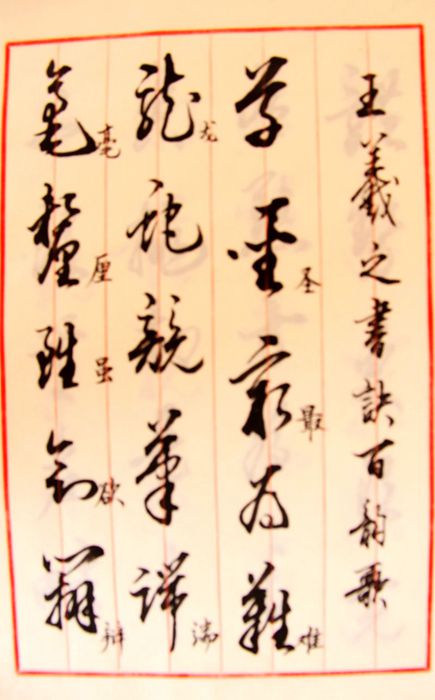 王羲之書訣百韵歌
草聖最為難
圣 最 难
龍蛇競筆端
龙 端
毫釐雖欲辨
毫 厘 虽 欲 辨